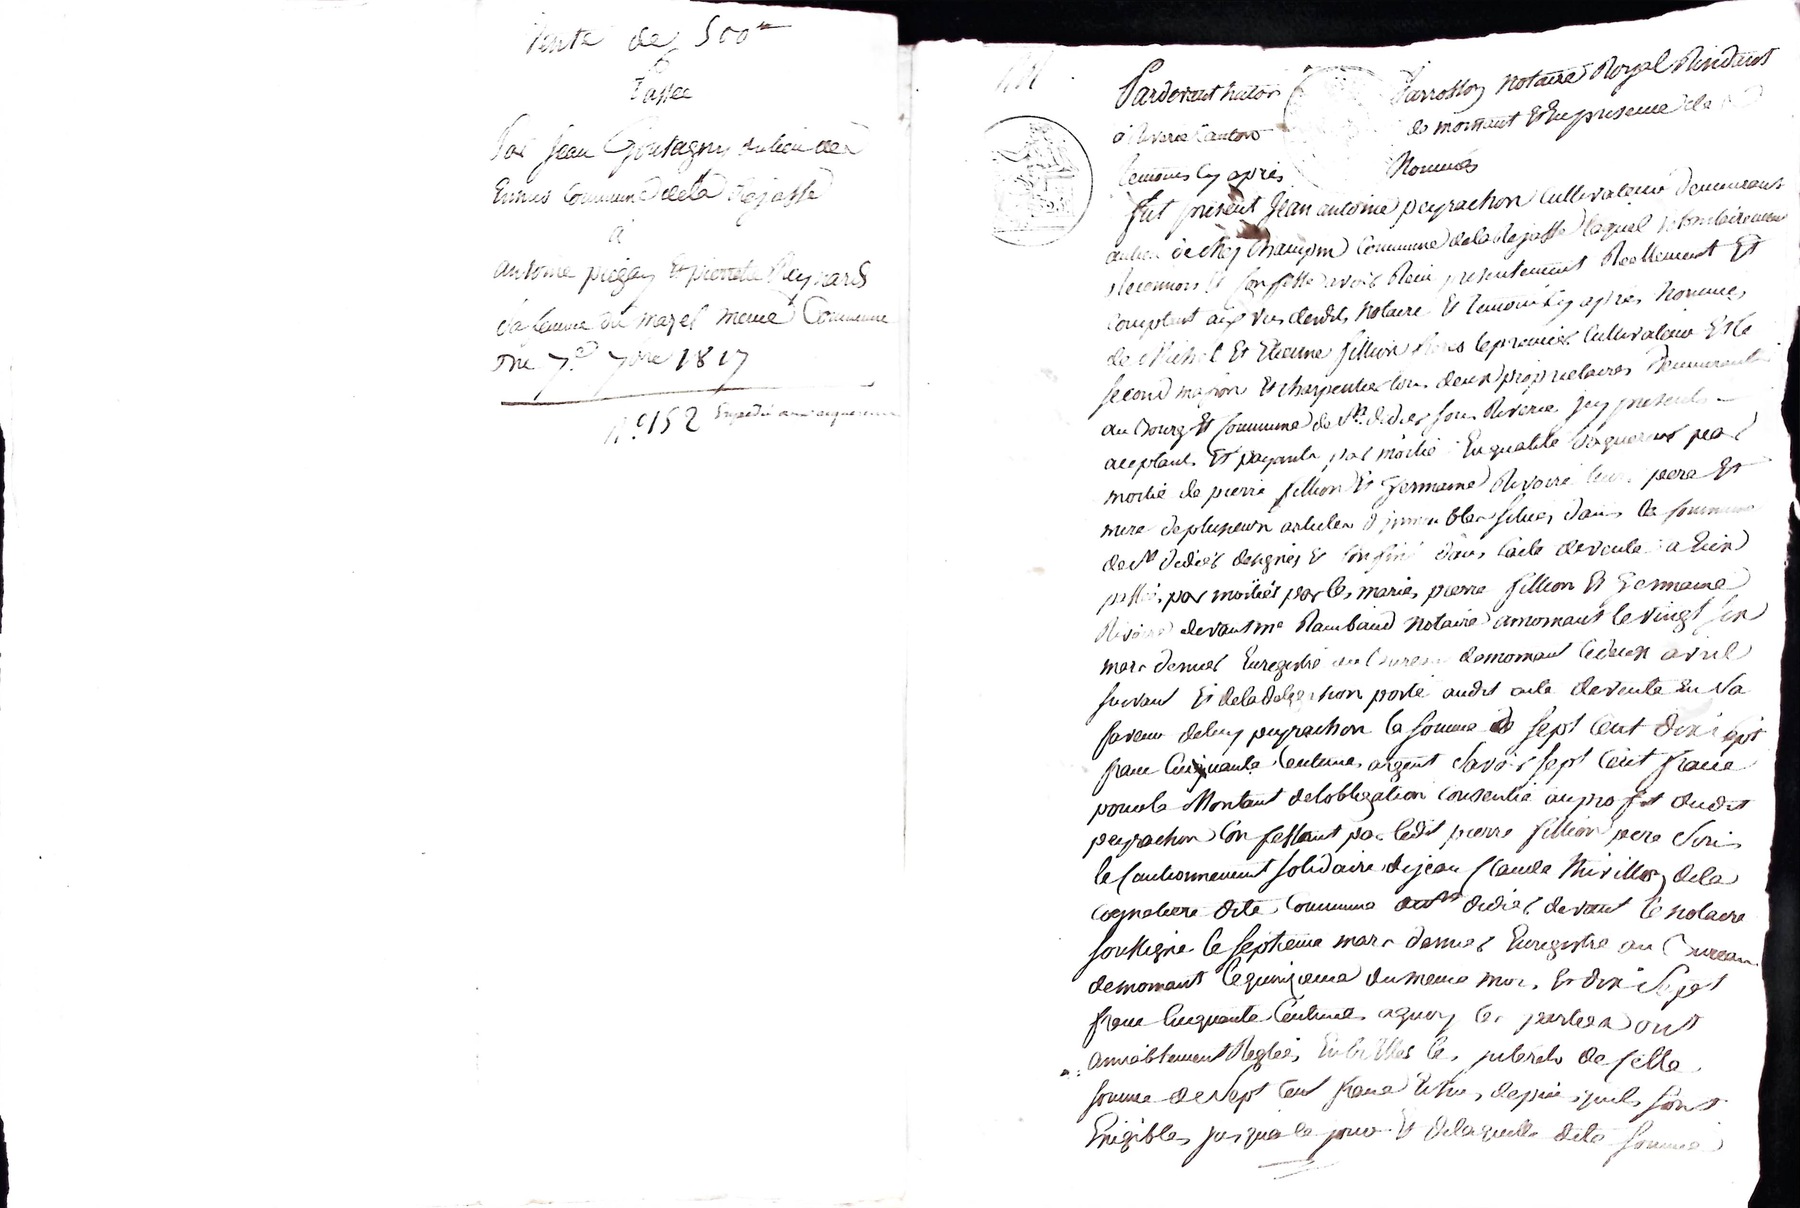 Vente de 500#
Passée
Par Jean Goutagny du lieu de
commune de la Rajasse
à
antoine piegay Et pierrette Reynard
sa femme du mazel meme Commune
Du 7e 7bre 1817
N° 152 Expedié aux acquereurs
Pardevant
notaire Royal Résidant
à Riverie Canton
de mornant Et En presence des
temoins cy après
Nommés
fut présent Jean antoine peyrachon Cultivateur demeurant
au lieu de chez Commune de la Rajasse lequel volontairement
Reconnois Et Confesse avoir Recu presentement Reellement Et
comptant aux vus desdits Notaire Et temoins cy après Nommés
de Michel Et Etienne fillion le premier Cultivateur Et le
second maçon Et charpentier tous deux propriétaires demeurants
au Bourg Et Commune de St didier sous Riverie icy presents
aceptants Et payants par moitié En qualité d'aquereurs par
moitié de pierre fillion Et Germaine Rivoire leurs pere Et
mere de plusieurs articles d'immeubles situés dans la Commune
de St didier designés Et confinés dans l'acte de vente a Eux
passé par moitiés par les mariés pierre fillion Et Germaine
Rivoire devant me Raimbaud notaire a mornant le vingt six
mars dernier Enregistré au Bureau de mornant le deux avril
suivant Et de la delegation porté audit acte de vente En sa
faveur de luy peyrachon la somme de sept Cent dix sept
franc Cinquante Centimes argent savoir sept Cent franc
pour le Montant de l'obligation Consentie au profit dudit
peyrachon Confessant par ledit pierre fillion pere sous
le Cautionnement solidaire de jean Claude Thivillon de la
dite Commune de St didier devant le notaire
soussigné le septieme mars dernier Enregistré au Bureau
de mornant le quinzieme du meme mois, Et dix sept
franc Cinquante Centimes aquoy les parties ont
amiablement Reglés Entr'Elles les interets de cette
somme de Sept Cent franc depuis quils sont
Exigibles jusqua ce jour Et de laquelle dite somme